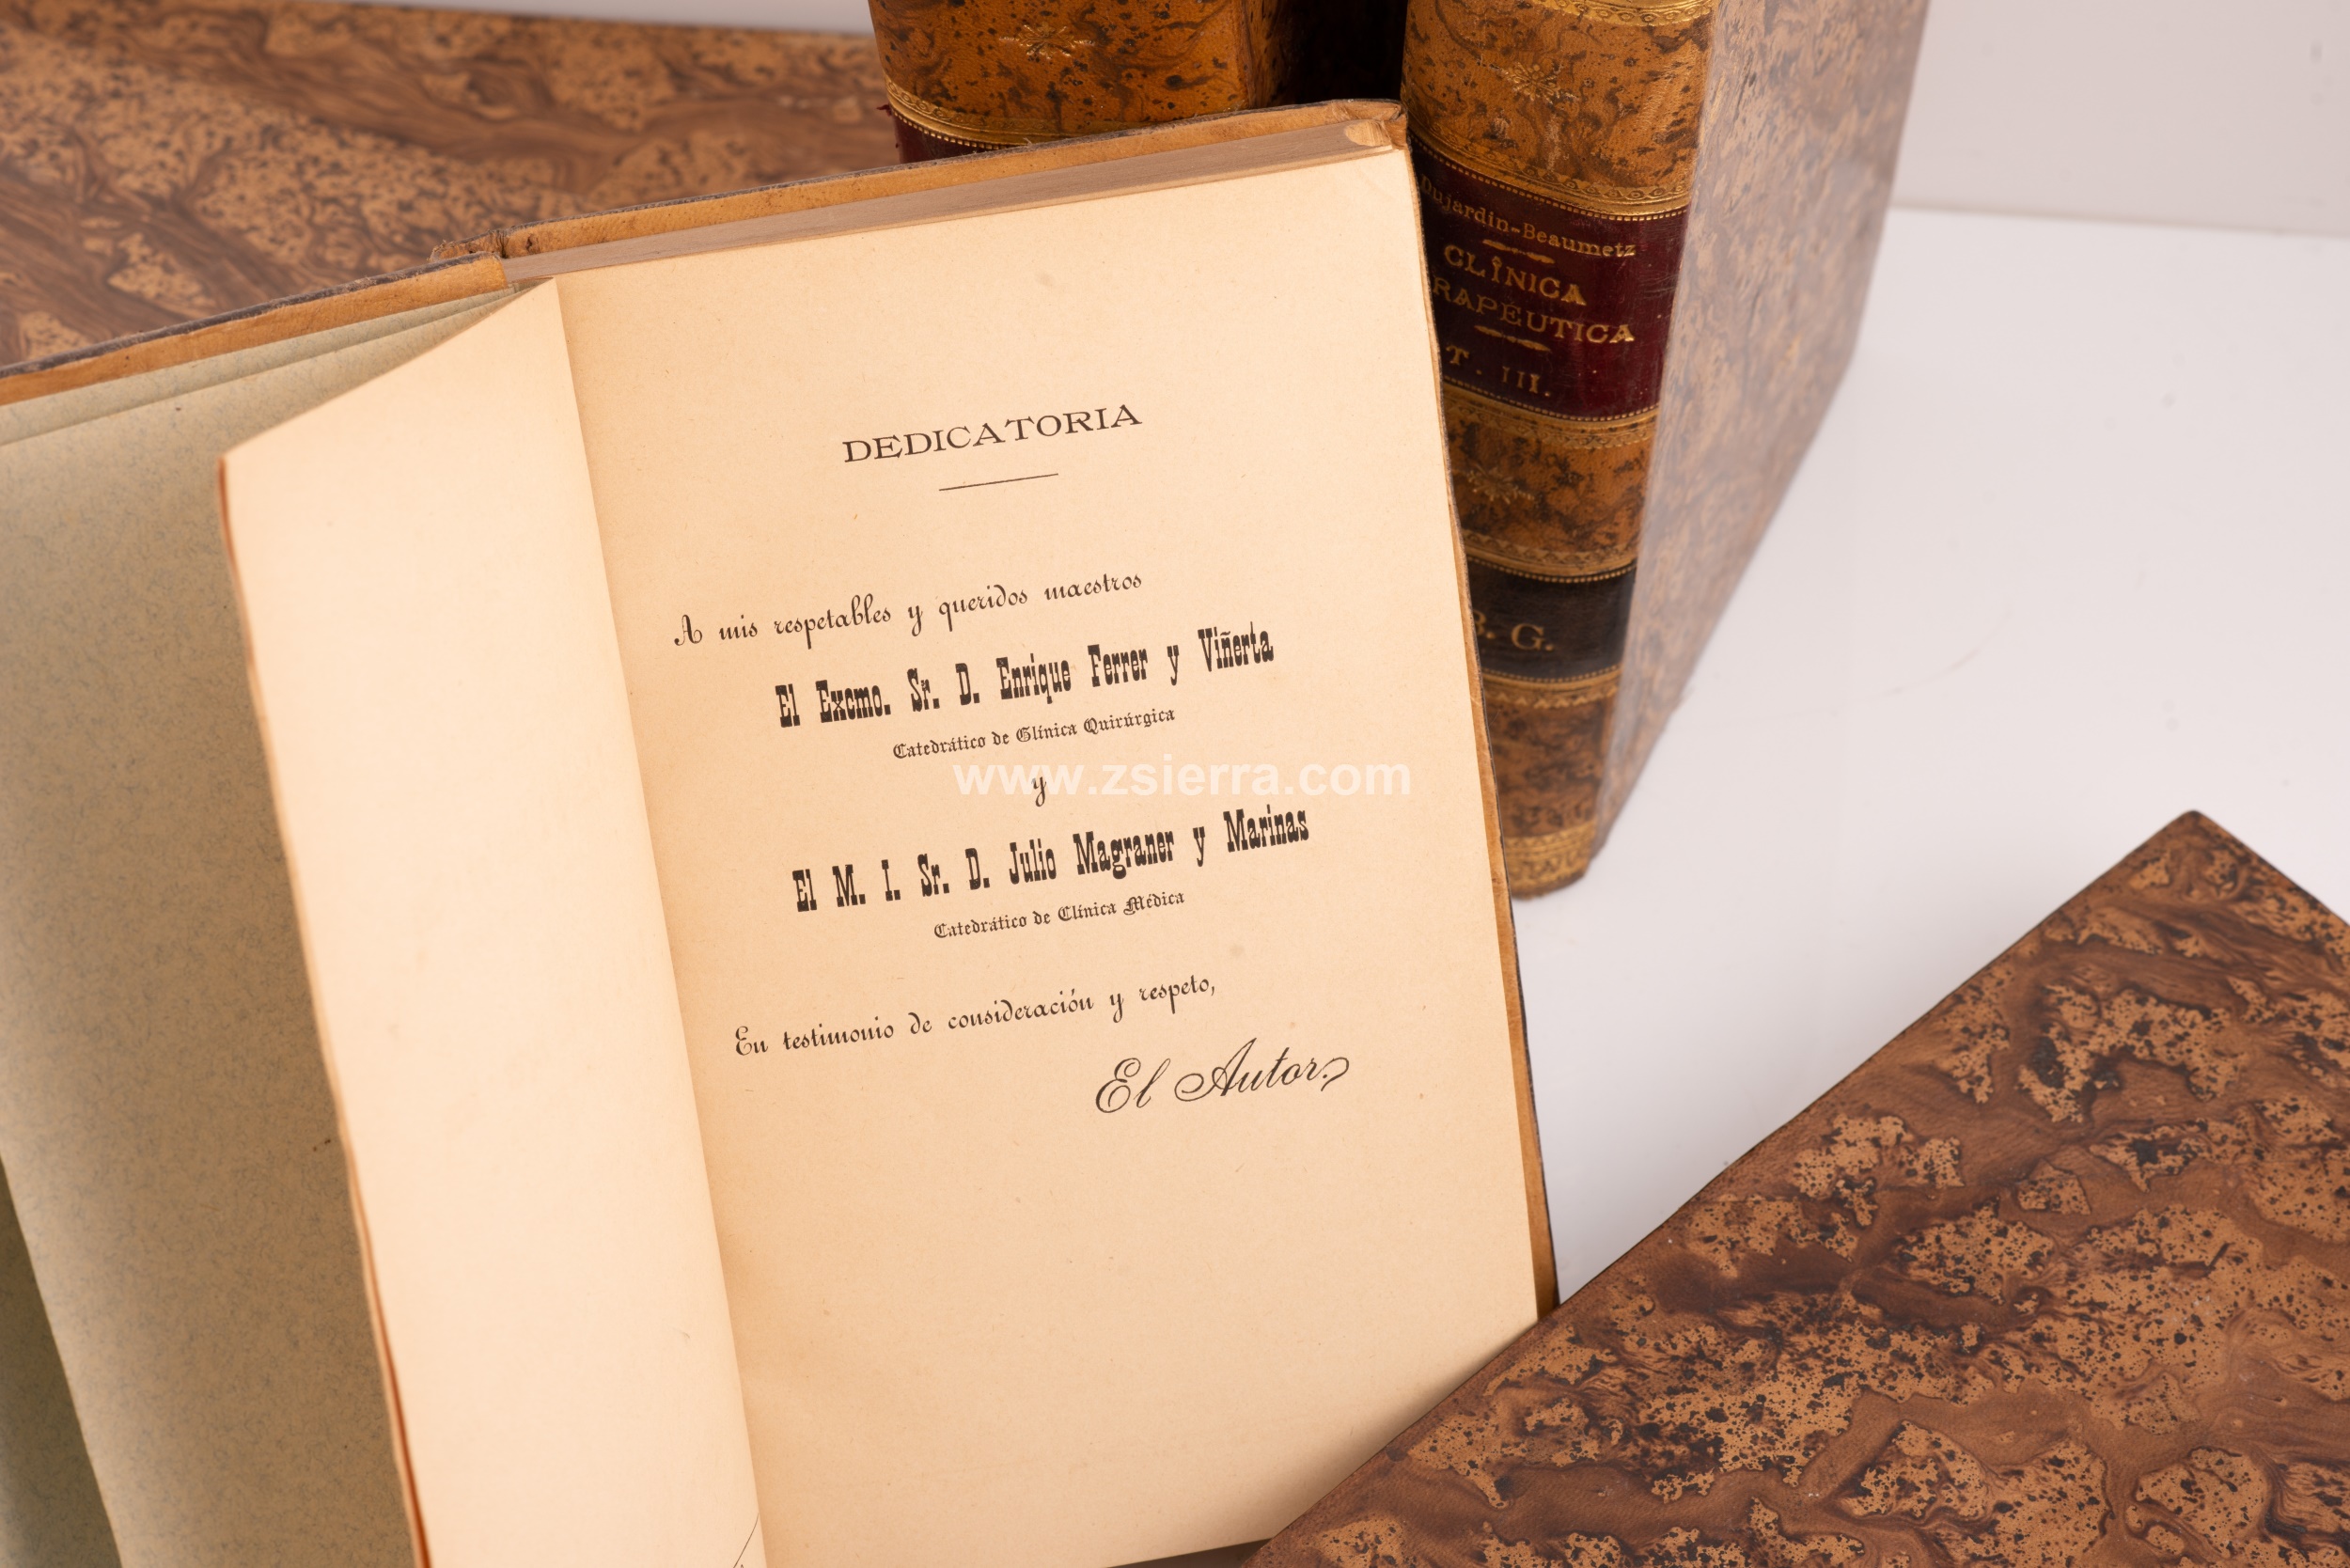 DEDICATORIA
A mis respetables y queridos maestros
El Excmo. Sr. D. Enrique Ferrer y Viñerta
Catedrático de Glínica Quirúrgica
y
El M. I. Sr. D. Julio Magraner y Marinas
Catedrático de Clínica Médica
En testimonio de consideración y respeto,
El Autor.
www.zsierra.com
Dujardin-Beaumetz
CLÍNICA
RAPÉUTICA
T. III.
G.